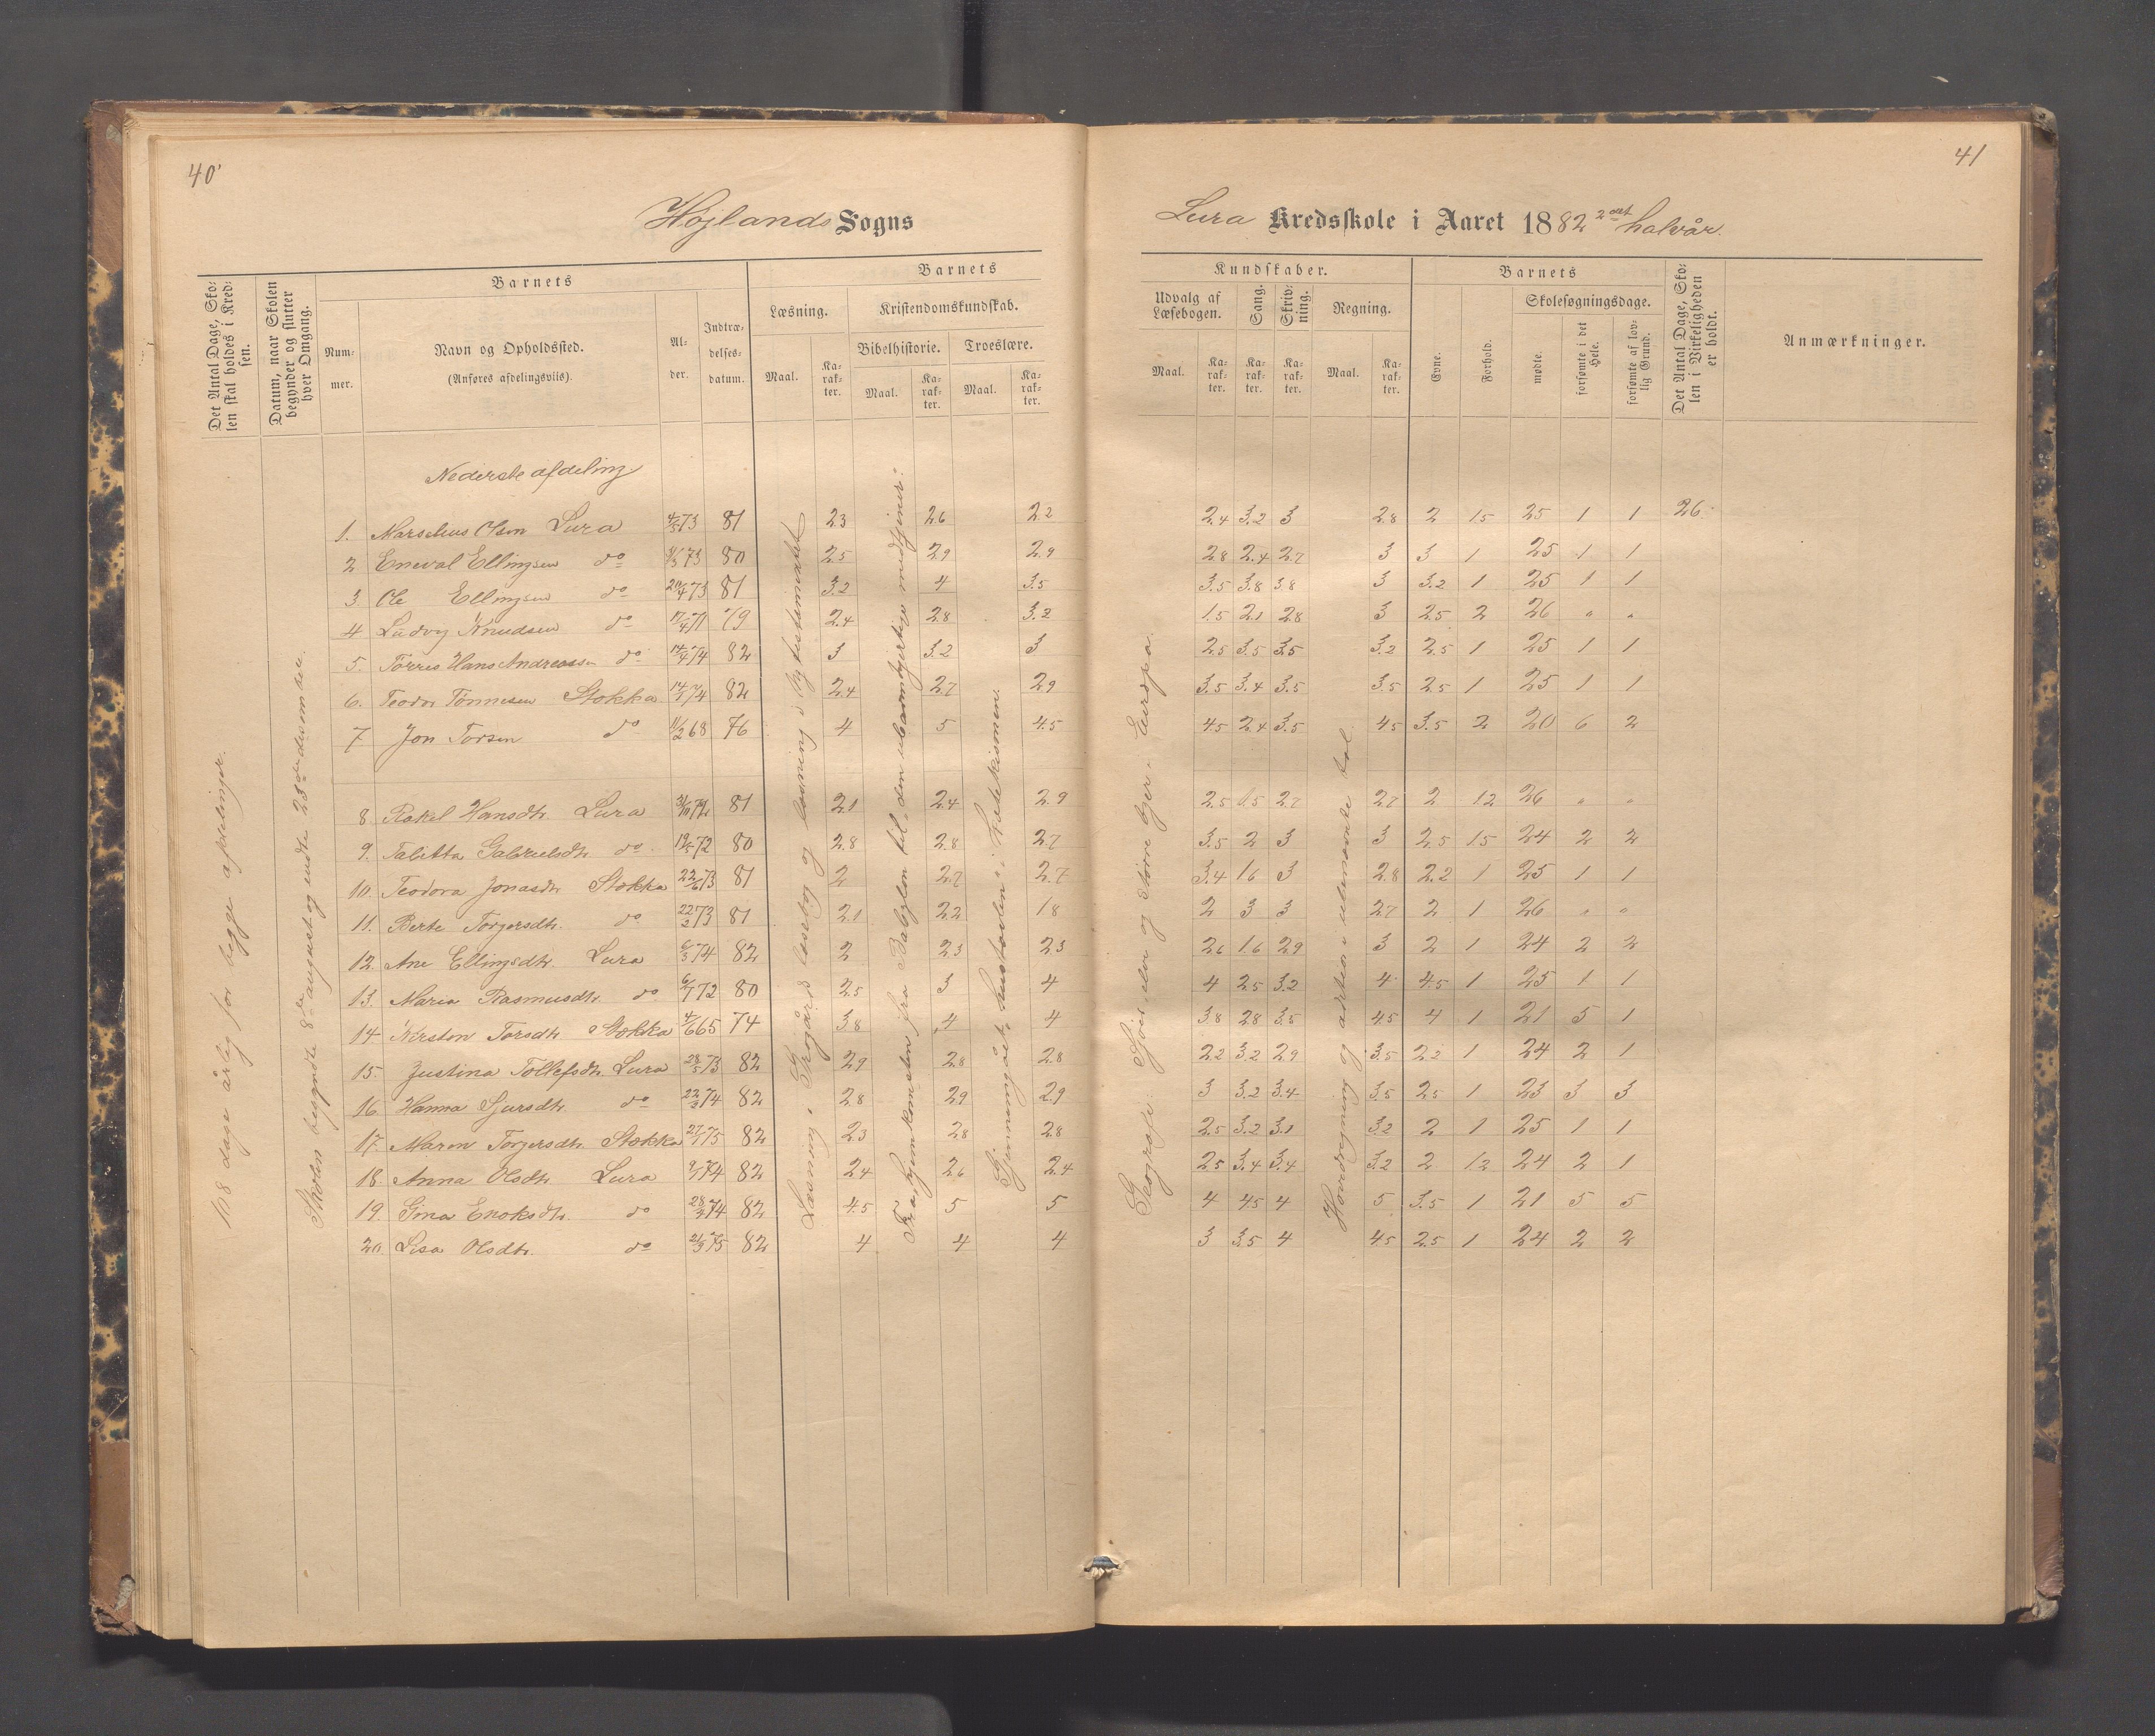 40
41
Højlands Sogns
Lura Kredsskole i Aaret 1882 2det halvår.
Det Antal Dage, Skolen skal holdes i Kredsen.
Datum, naar Skolen begynder og slutter hver Omgang.
Barnets
Nummer.
Navn og Opholdssted.
(Anføres afdelingsviis).
Alder.
Indtrædelsesdatum.
Barnets
Læsning.
Maal.
Karakter.
Kristendomskundskab.
Bibelhistorie.
Maal.
Karakter.
Troeslære.
Maal.
Karakter.
Kundskaber.
Udvalg af Læsebogen.
Maal.
Karakter.
Sang.
Karakter.
Skrivning.
Karakter.
Regning.
Maal.
Karakter.
Barnets
Evne.
Forhold.
Skolesøgningsdage.
mødte.
forsømte i det Hele.
forsømte af lovlig Grund.
Det Antal Dage, Skolen i Virkeligheden er holdt.
Anmærkninger.
108 dage årlig for begge afdelinger.
Skolen begyndte 8de august og endte 23de desember.
Læsning i Grøgårds læsebog og læsning i Ny testamentet
Fra hjemkomsten fra Babylon til den
Geografi: Søer, elve og større byer i Europa.
Hovedregning og
Nederste afdeling
1. Marselius Olsen Lura 4/5 73 81 2.3 2.6 2.2 2.4 3.2 3 2.8 2 1.5 25 1 1 26
2 Eneval Ellingsen do 73 80 2.5 2.9 2.9 2.8 2.4 2.7 3 3 1 25 1 1
3. Ole Ellingsen do 20/4 73 81 3.2 4 3.5 3.5 3.8 3.8 3 3.2 1 25 1 1
4 Ludvig Knudsen do 17/4 71 79 2.4 2.8 3.2 1.5 2.1 2.8 3 2.5 2 26 " "
5. Torres Hans Andreassen do 14/4 74 82 3 3.2 3 2.5 3.5 3.5 3.2 2.5 1 25 1 1
6. Teodor Tønnesen Stokka 14/1 74 82 2.4 2.7 2.9 3.5 3.4 3.5 3.5 2.5 1 25 1 1
7 Jon Torsen do 11/2 68 76 4 5 4.5 4.5 2.4 3.5 4.5 3.5 2 20 6 2
8 Rakel Hansdtr Lura 31/10 72 81 2.1 2.4 2.9 2.5 1.5 2.7 2.7 2 1.2 26 " "
9. Tabitta Gabrielsdtr do 19/5 72 80 2.8 2.8 2.7 3.5 2 3 3 2.5 1.5 24 2 2
10. Teodora Jonasdtr Stokka 22/6 73 81 2 2.7 2.7 3.4 1.6 3 2.8 2.2 1 25 1 1
11. Berte Torgersdtr. do 22/2 73 81 2.1 2.2 1.8 2 3 3 2.7 2 1 26 " "
12. Ane Ellingsdtr. Lura 6/3 74 82 2 2.3 2.3 2.6 1.6 2.9 3 2 1 24 2 2
13. Maria Rasmusdtr. do 6/1 72 80 2.5 3 4 4 2.5 3.2 4 4.5 1 25 1 1
14 Kersten Torsdtr. Stokka 4/6 65 74 3.8 4 4 3.8 2.8 3.5 4.5 4 1 21 5 1
15. Justina Tollefsdtr. Lura 28/5 73 82 2.9 2.8 2.8 2.2 3.2 2.9 3.5 2.2 1 24 2 1
16. Hanna Sjursdtr. do 22/3 74 82 2.8 2.9 2.9 3 3.2 3.4 3.5 2.5 1 23 3 3
17. Maren Torgersdtr. Stokka 27/1 75 82 2.3 2.8 2.8 2.5 3.2 3.1 3.2 2 1 25 1 1
18. Anna Olsdtr. Lura 74 82 2.4 2.6 2.4 2.5 3.4 3.4 3.2 2 1.2 24 2 1
19. Gina Enoksdtr. do 28/2 74 82 4.5 5 5 4 4.5 4 5 3.5 1 21 5 5
20. Lisa Olsdtr. do 21/3 75 82 4 4 4 3 3.5 4 4.5 2.5 1 24 2 2